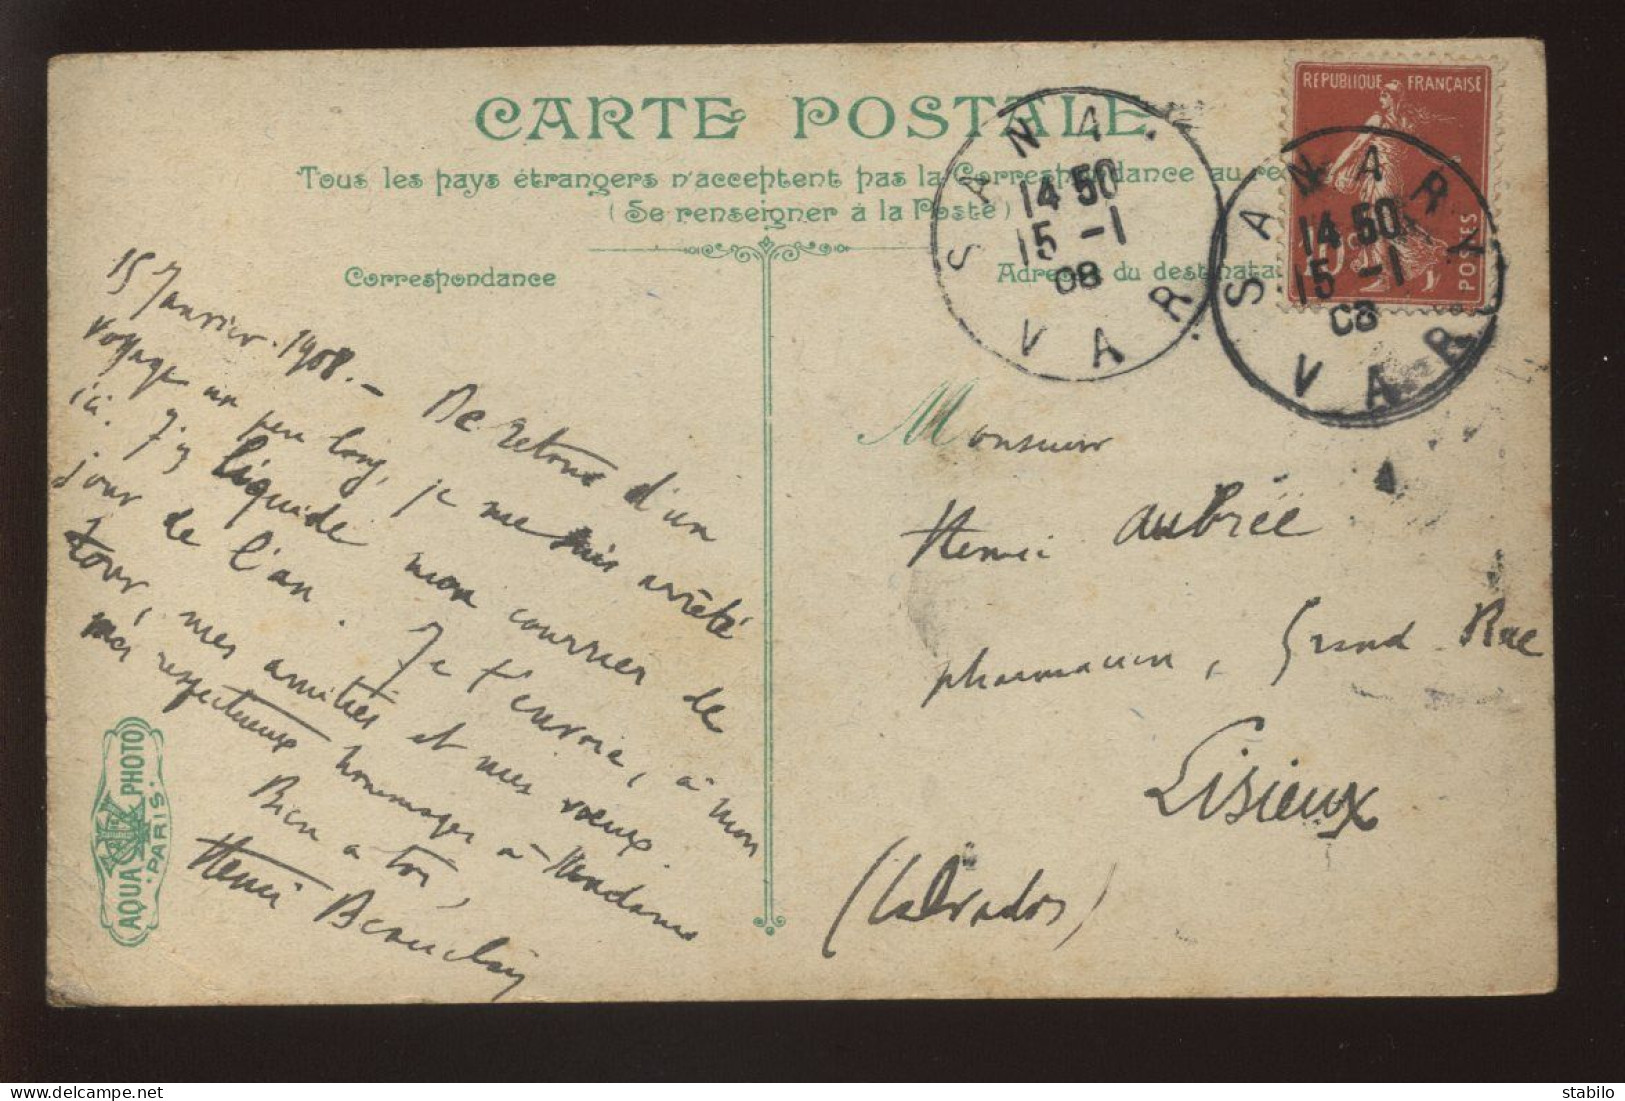 CARTE POSTALE
Tous les pays étrangers n'acceptent pas la Correspondance au
(Se renseigner à la Poste)
Correspondance
Adresse du destinata
REPUBLIQUE FRANÇAISE
POSTES
10
SANARY
14 50
15 -1
08
VAR
SANARY
14 50
15 -1
08
VAR
15 Janvier 1908. - De retour d'un
voyage un peu long, je me suis arrêté
ici. J'y liquide mon courrier de
jour de l'an. Je t'envoie, à mon
tour, mes amitiés et mes vœux
mes respectueux hommages à Madame
Bien à toi,
Henri
Monsieur
Henri Aubrée
pharmacien, Grand Rue
Lisieux
(Calvados)
AQUA PHOTO
PARIS